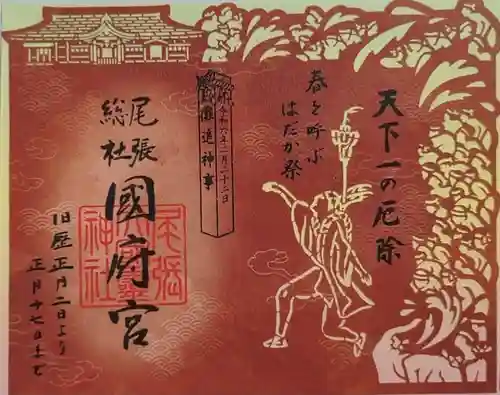 天下一の厄除
春を呼ぶ
はだか祭
令和六年二月二十二日
儺追神事
尾張
総社
國府宮
尾張
神社
旧暦正月二日より
正月十七日まで